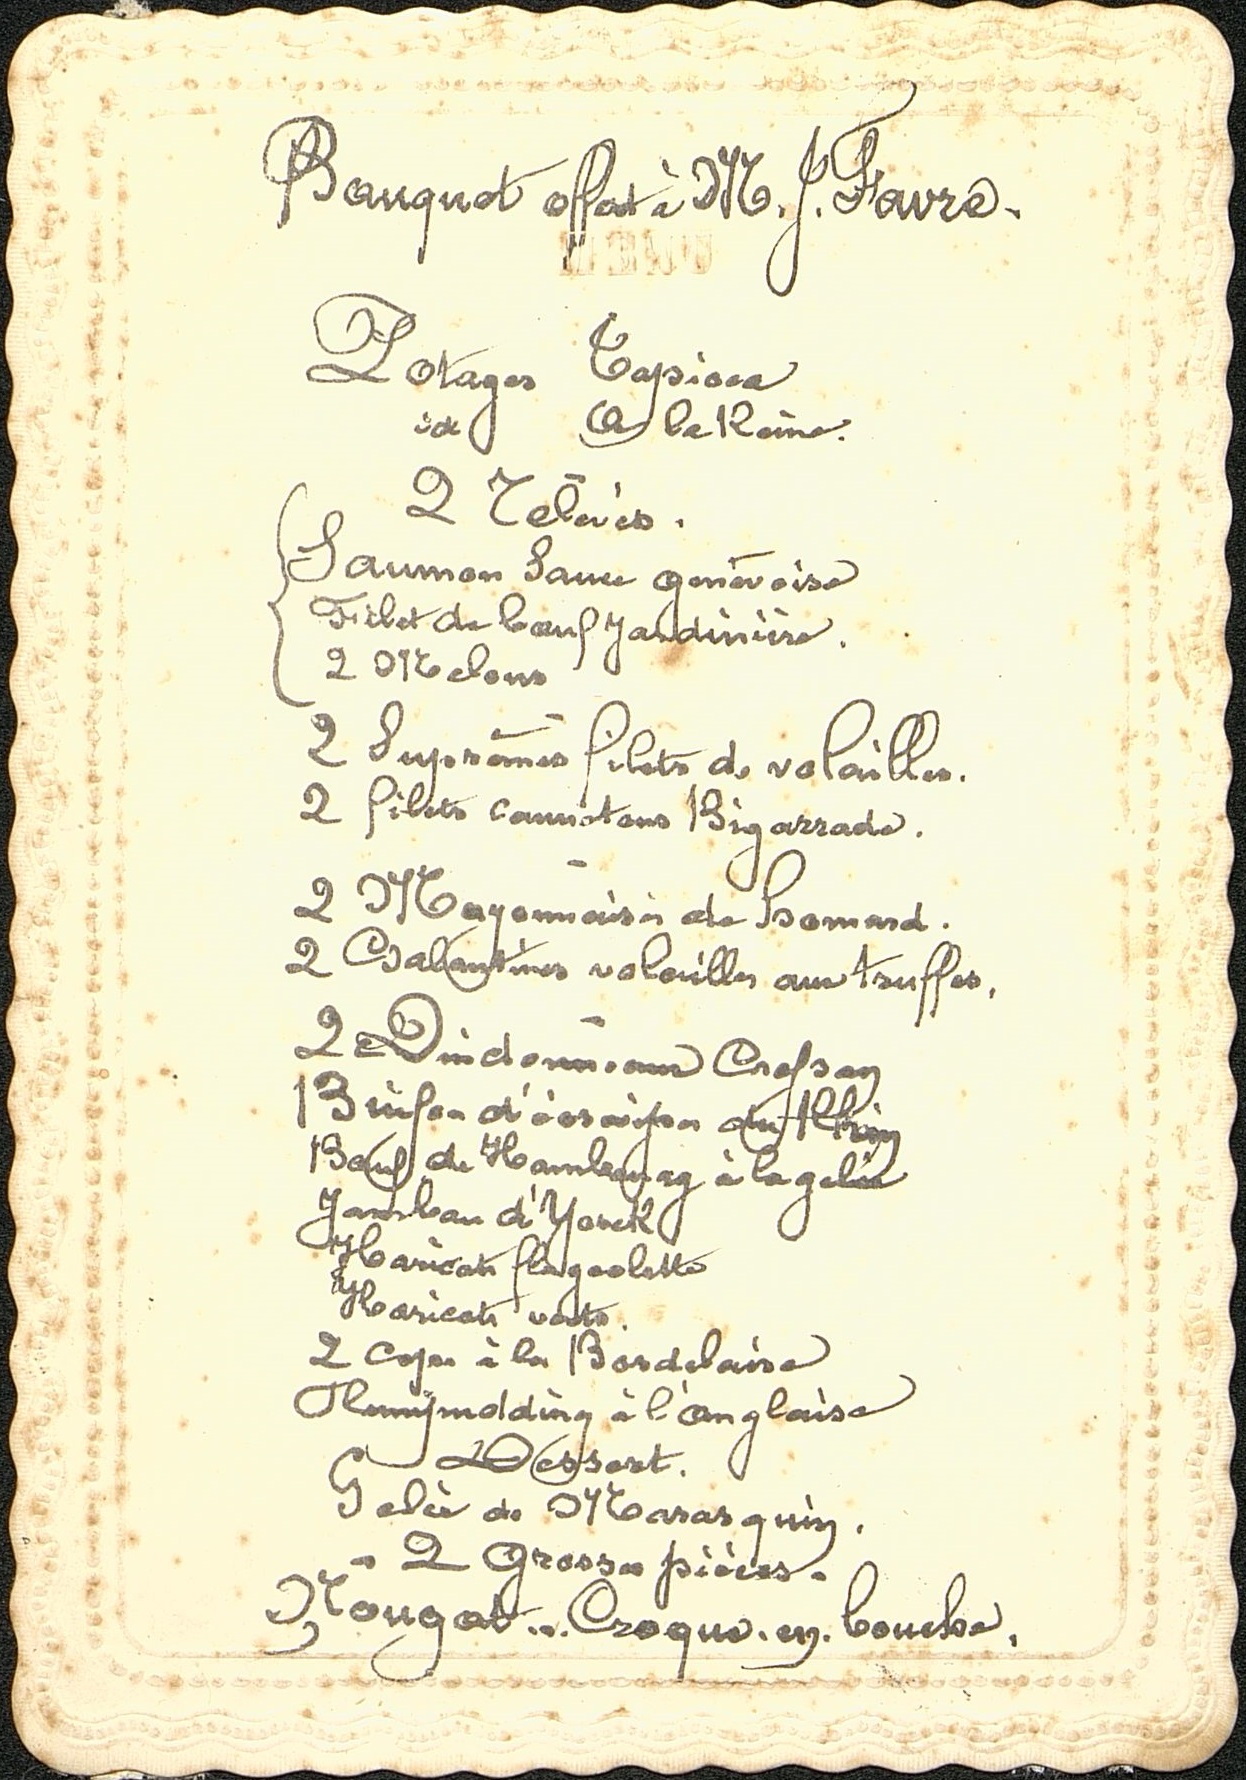 Banquet offert à M. J. Favre.
Potages Tapioca
id A la Reine.
2 relevés.
Saumon Sauce génèvoise
Filet de bœuf jardinière.
2 Melons
2 Suprêmes filets de volailles.
2 filets cannetons Bigarrade.
2 Mayonnaises de homard.
2 Galantines volailles aux truffes.
2 Dindonneaux Cresson
d'écrevisses du Rhin
Bœuf de Hambourg à la gelée
Jambon d'Yorck
Haricots flageolette
Haricots verts.
2 ceps à la Bordelaise
Plumpudding à l'anglaise
Dessert.
Gelée de Marasquin.
2 Grosses pièces.
Nougat... Croque.en.bouche.